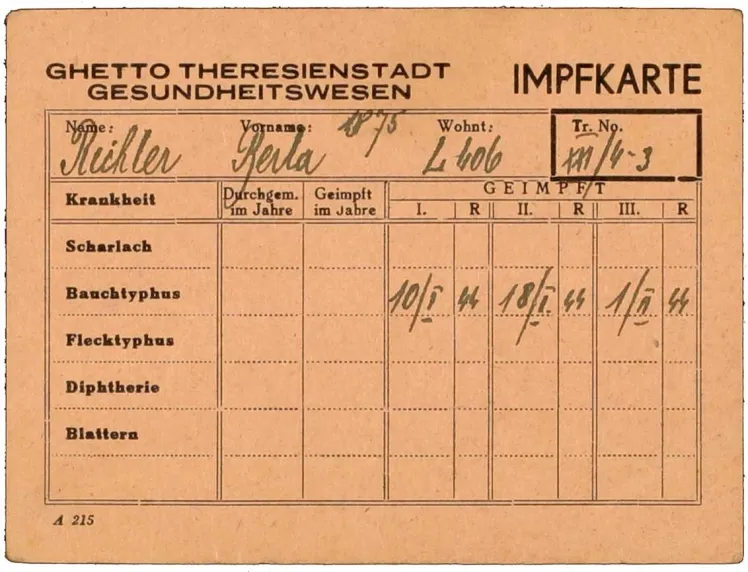 GHETTO THERESIENSTADT
GESUNDHEITSWESEN
IMPFKARTE
Name: Vorname: 1875 Wohnt: Tr. No.
L 406 /4-3
Krankheit Durchgem. im Jahre Geimpft im Jahre GEIMPFT
I. R II. R III. R
Scharlach
Bauchtyphus 10/I 44 18/I 44 1/II 44
Flecktyphus
Diphtherie
Blattern
A 215